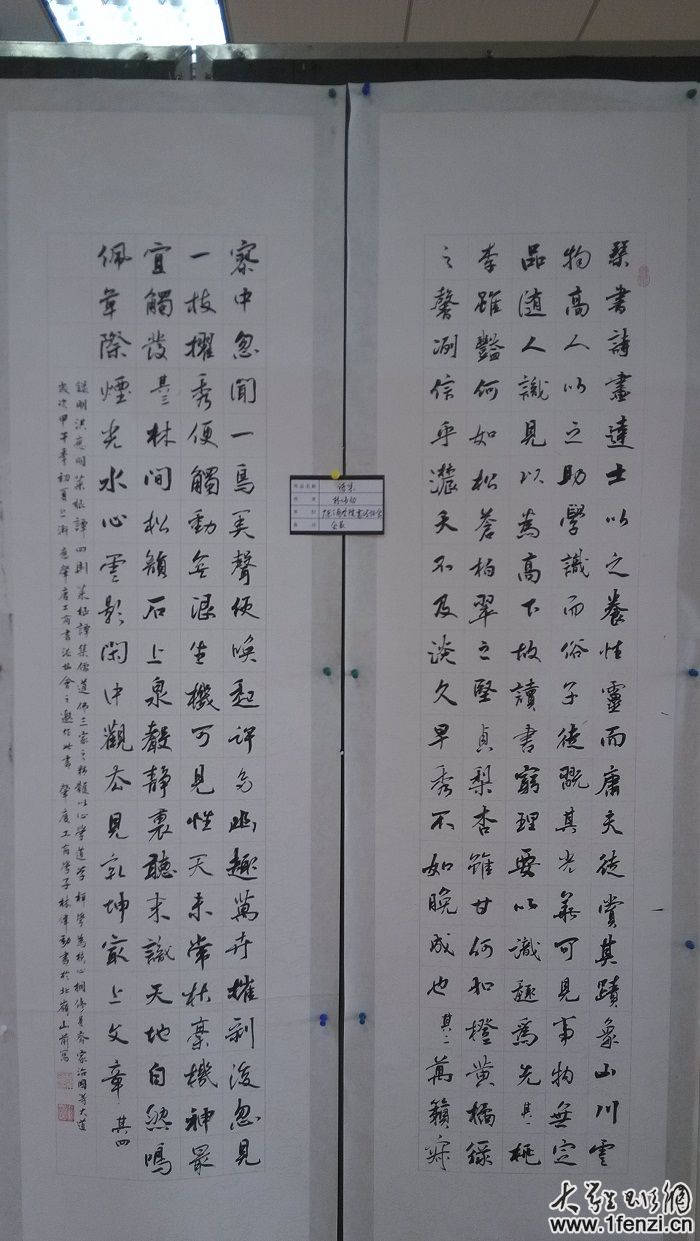 琴書詩畫達士以之養性靈而庸夫徒賞其蹟象山川雲
物高人以之助學識而俗子徒翫其光華可見事物無定
品隨人識見以為高下故讀書窮理要以識趣為先其一桃
李雖豔何如松蒼柏翠之堅貞梨杏雖甘何如橙黃橘綠
之馨冽信乎濃夭不及淡久早秀不如晚成也其二萬籟寂
寥中忽聞一鳥弄聲便喚起許多幽趣萬卉摧剝後忽見
一枝擢秀便觸動無限生機可見性天未常枯槁機神最
宜觸發其三林間松韻石上泉聲靜裏聽來識天地自然鳴
佩草際煙光水心雲影閑中觀去見乾坤最上文章其四
錄明洪應明菜根譚四則菜根譚集儒道佛三家之精髓以心學道學禪學為核心修身齊家治國等大道
歲次甲午年初夏之漸應肇慶工商書法協會之邀作此書 肇慶工商學子林偉勁書於北嶺山前寫
作品名称
会长
www.1fenzi.cn